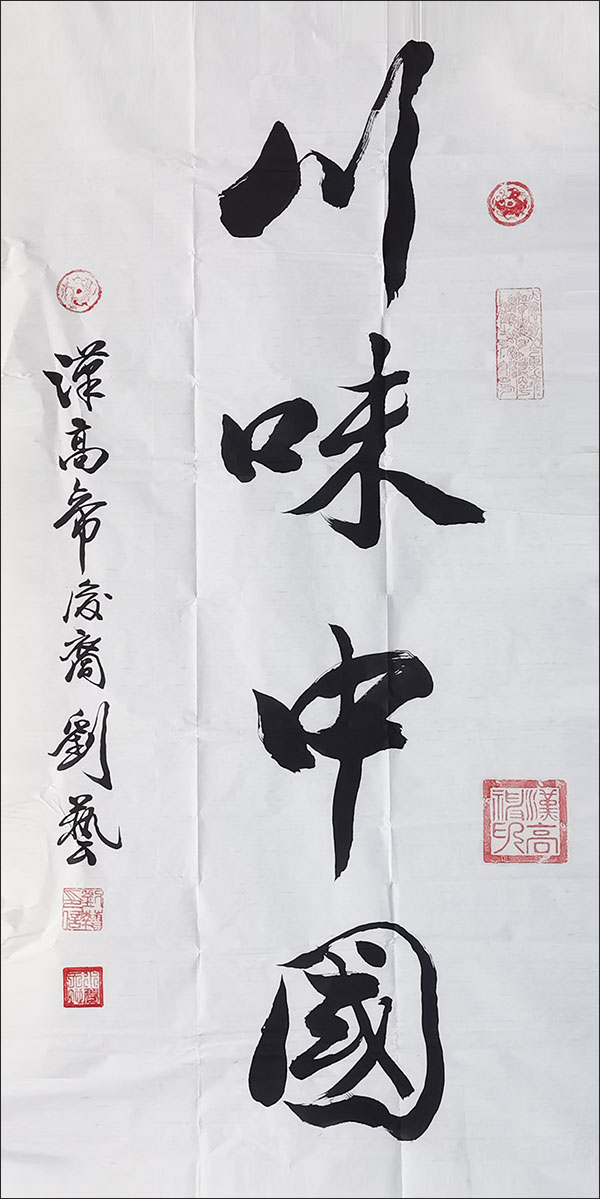 川味中國
漢高帝後裔劉藝
漢高